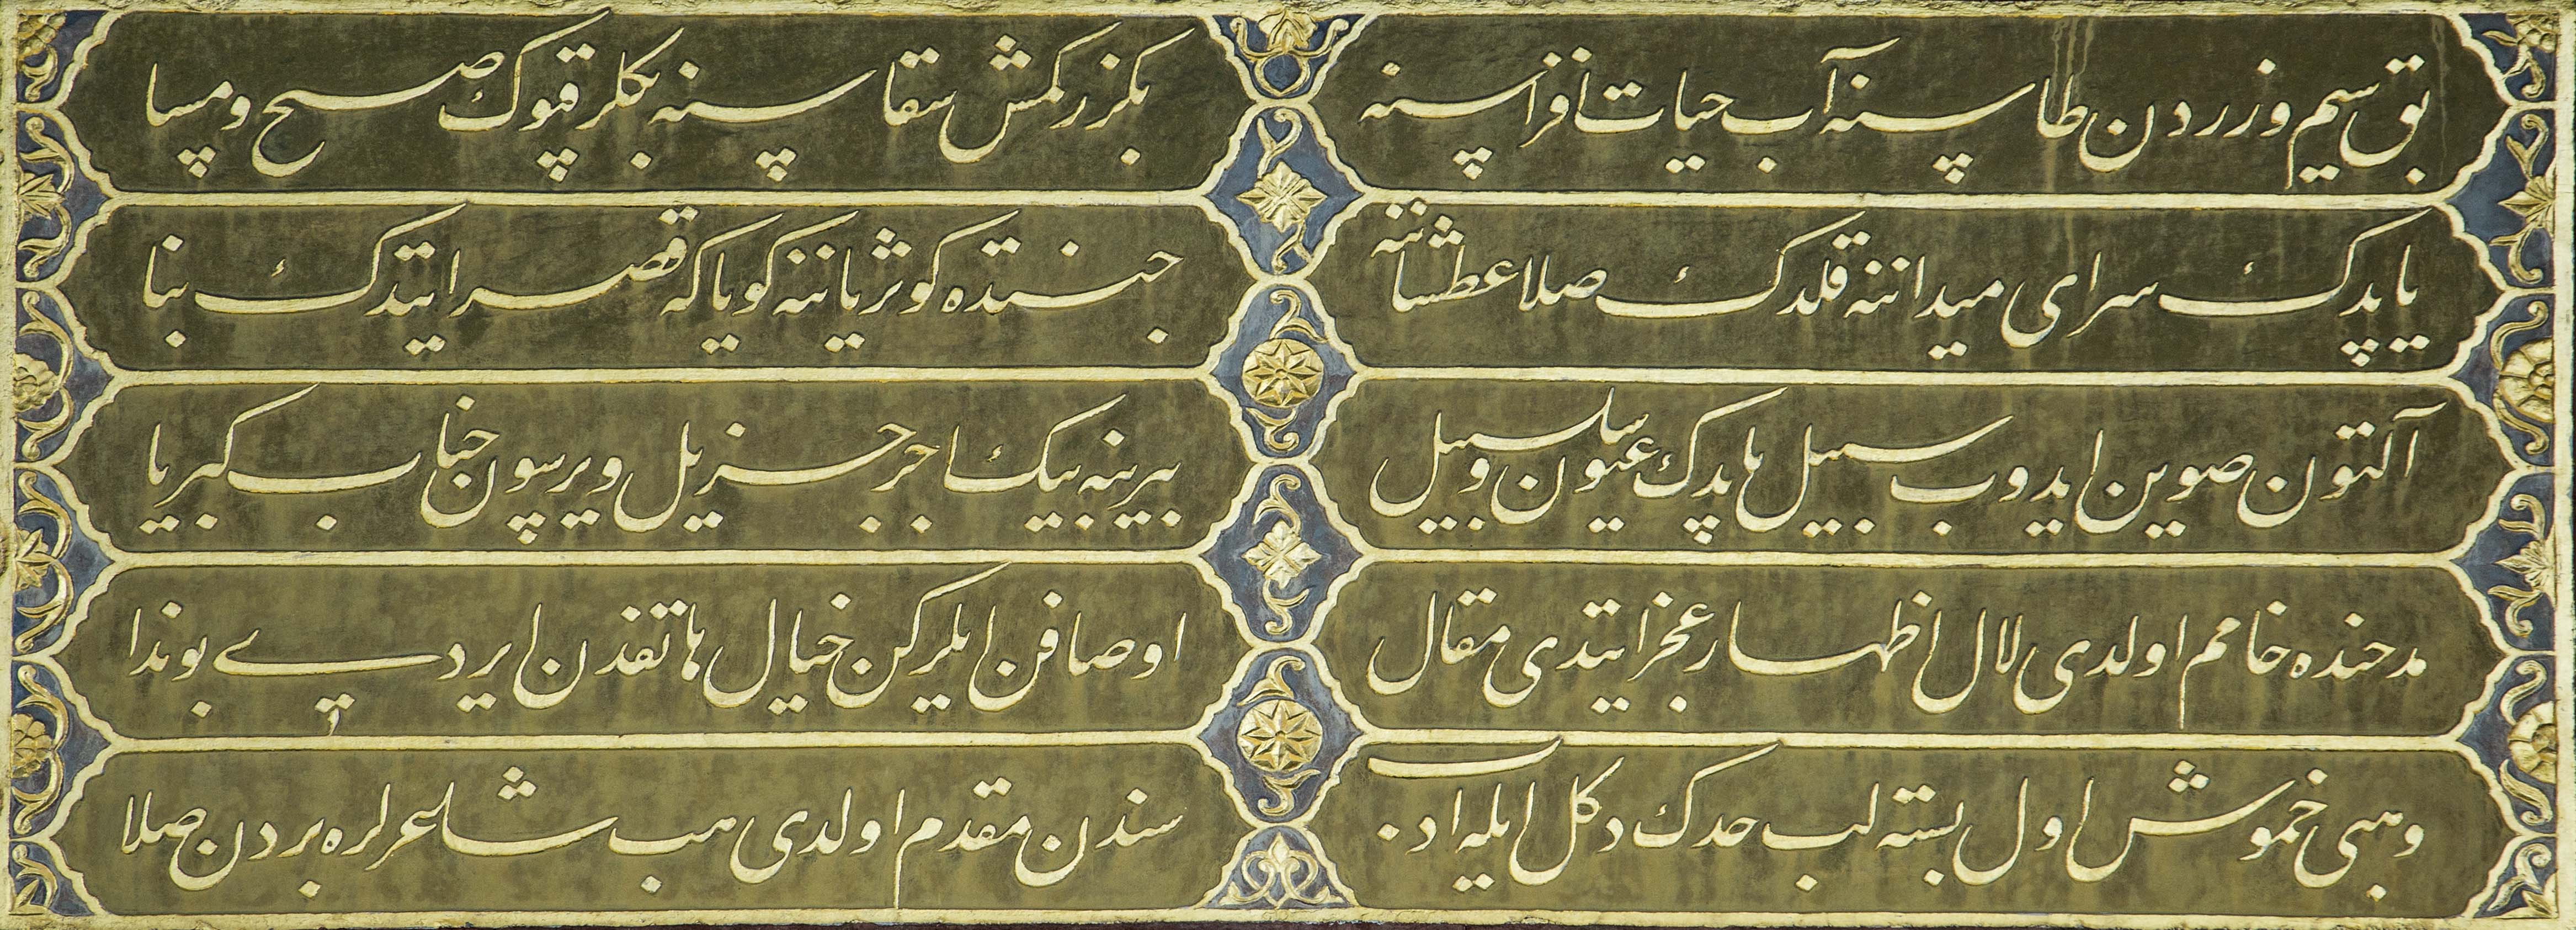 بق سیم وزردن طاسنه آب حیات افزاسنه
بكزر كمش سقاسنه بكلر قپوك صبح ومسا
یاپدك سرای میداننه قلدك صلا عطشاننه
جنتده كوثر یاننه كویا كه قصر ایتدك بنا
آلتون صوین ایدوب سبیل یاپدك عیون وسلسبیل
بیرینه بیك اجر جزیل ویرسون جناب كبریا
مدحنده خامم اولدی لال اظهار عجز ایتدی مقال
اوصافن ایلركن خیال هاتفدن ایردی بو ندا
وهبی خموش اول بسته لب حدك دكل ایله ادب
سندن مقدم اولدی هب شاعرلره بردن صلا